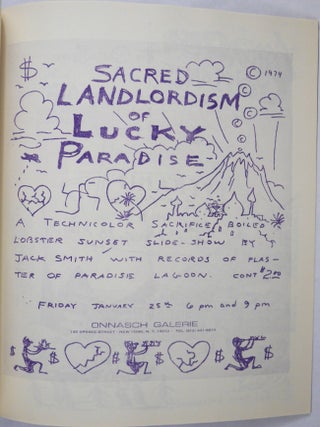 $ © 1974
SACRED
LANDLORDISM
OF
LUCKY
PARADISE
A TECHNICOLOR SACRIFICE BOILED
LOBSTER SUNSET SLIDE-SHOW BY
JACK SMITH WITH RECORDS OF PLAS-
TER OF PARADISIE LAGOON. CONT $2.00
FRIDAY JANUARY 25th 6 pm and 9 pm
ONNASCH GALERIE
NEW YORK, N.Y.
$ $ $ $